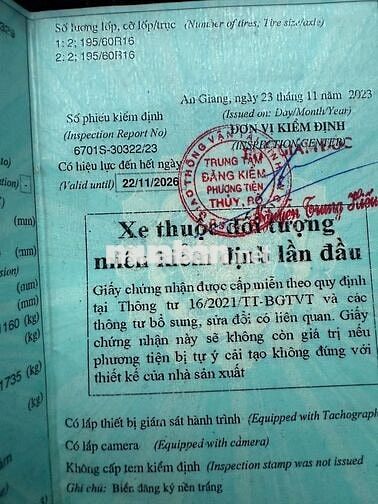 Số lượng lốp, cỡ lốp/trục (Number of tires; Tire size/axle)
1: 2; 195/60R16
2: 2; 195/60R16
An Giang, ngày 23 tháng 11 năm 2023
(Issued on: Day/Month/Year)
Số phiếu kiểm định
(Inspection Report No)
6701S-30322/23
ĐƠN VỊ KIỂM ĐỊNH
(INSPECTION CENTER)
Có hiệu lực đến hết ngày
(Valid until) 22/11/2026
TRUNG TÂM
ĐĂNG KIỂM
PHƯƠNG TIỆN
THỦY, BỘ
Nguyễn Trung Hiếu
Xe thuộc đối tượng
miễn kiểm định lần đầu
Giấy chứng nhận được cấp miễn theo quy định
tại Thông tư 16/2021/TT-BGTVT và các
thông tư bổ sung, sửa đổi có liên quan. Giấy
chứng nhận này sẽ không còn giá trị nếu
phương tiện bị tự ý cải tạo không đúng với
thiết kế của nhà sản xuất
Có lắp thiết bị giám sát hành trình (Equipped with Tachograph
Có lắp camera (Equipped with camera)
Không cấp tem kiểm định (Inspection stamp was not issued
Ghi chú: Biển đăng ký nền trắng
(mm)
(mm)
(mm)
1160 (kg)
(kg)
1735 (kg)
(kg)